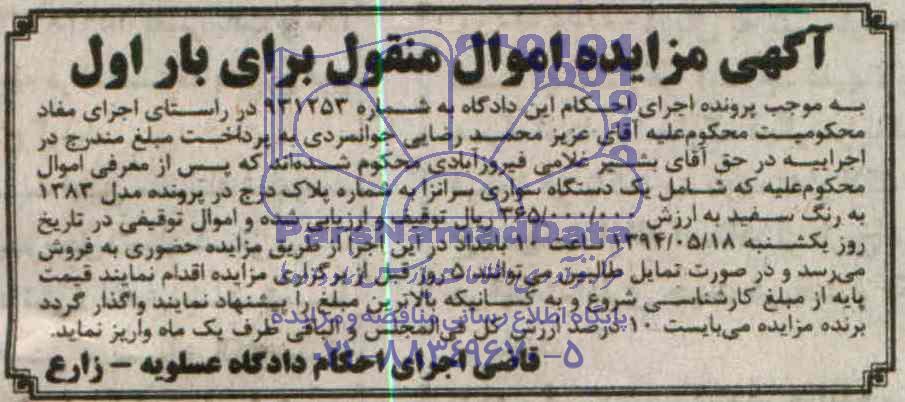 آگهی مزایده اموال منقول برای بار اول
به موجب پرونده اجرای احکام این دادگاه به شماره ۹۳۱۲۵۳ در راستای اجرای مفاد
محکومیت محکوم‌علیه آقای عزیز محمد رضایی جوانمردی به پرداخت مبلغ مندرج در
اجراییه در حق آقای بشیر غلامی فیروزآبادی محکوم شده‌اند که پس از معرفی اموال
محکوم‌علیه که شامل یک دستگاه سواری سرانزا به شماره پلاک درج در پرونده مدل ۱۳۸۳
به رنگ سفید به ارزش ۳۶۵/۰۰۰/۰۰۰ ریال توقیف و ارزیابی شده و اموال توقیفی در تاریخ
روز یکشنبه ۱۳۹۴/۰۵/۱۸ ساعت ۱۰ بامداد در این اجرا از طریق مزایده حضوری به فروش
می‌رسد و در صورت تمایل طالبین می‌توانند ۵ روز قبل از برگزاری مزایده اقدام نمایند قیمت
پایه از مبلغ کارشناسی شروع و به کسانیکه بالاترین مبلغ را پیشنهاد نمایند واگذار گردد
برنده مزایده می‌بایست ۱۰ درصد ارزش کل فی‌المجلس و الباقی ظرف یک ماه واریز نماید.
قاضی اجرای احکام دادگاه عسلویه - زارع
ParsNamadData
پایگاه اطلاع رسانی مناقصه و مزایده
۰۲۱-۸۸۳۴۹۶۷۰-۵